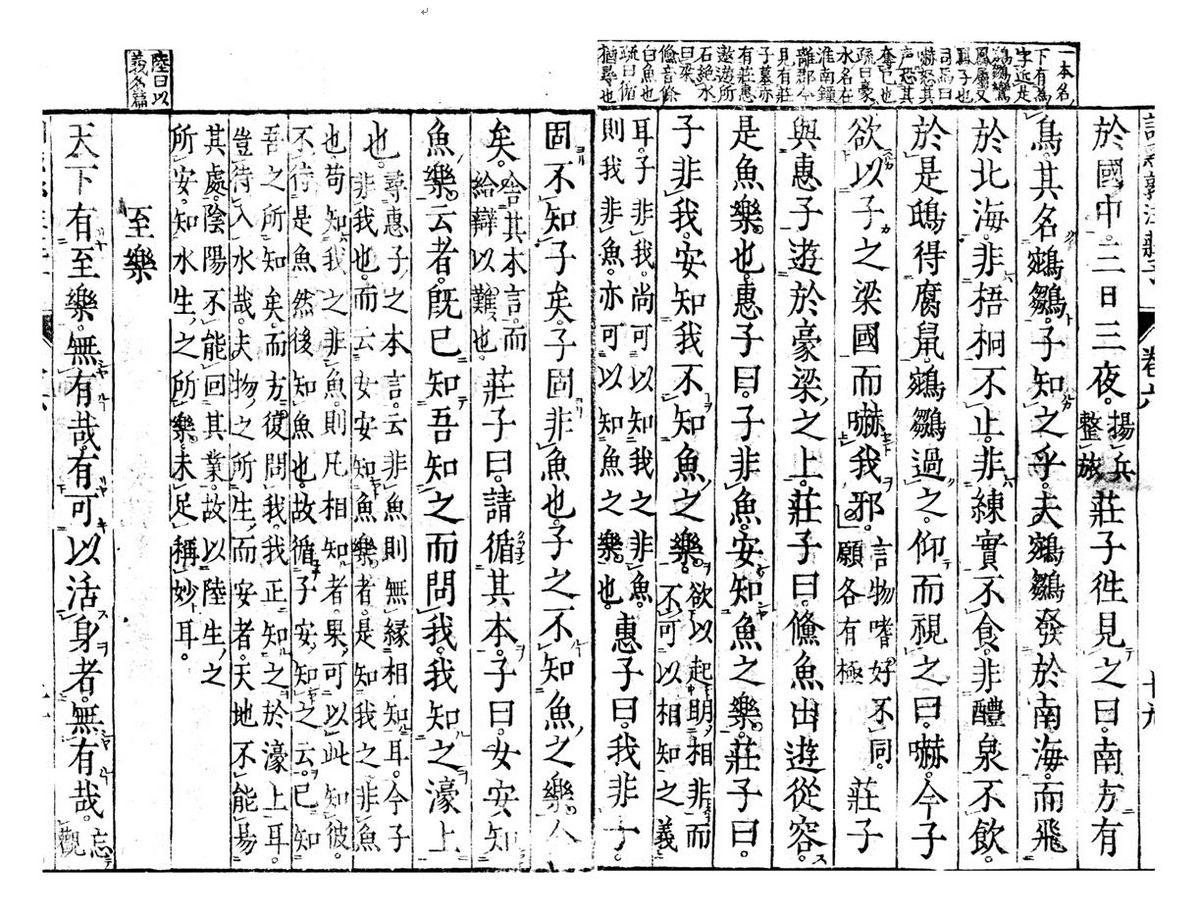 一本名
下有為
字近是
鵷鶵鸞
鳳屬又
其子也
司馬曰
嚇怒其
声恐其
奪己也
疏曰豪
水名在
淮南鍾
離郡今
見有莊
子墓亦
有莊惠
遨遊所
石絶水
曰梁
鯈音條
白魚也
疏曰循
猶尋也
卷六
十九
於國中。三日三夜。揚兵整旅莊子徃見之曰。南方有
鳥。其名鵷鶵。子知之乎。夫鵷鶵發於南海。而飛
於北海。非梧桐不止。非練實不食。非醴泉不飲。
於是鴟得腐鼠。鵷鶵過之。仰而視之曰。嚇。今子
欲以子之梁國而嚇我邪。言物嗜好不同。願各有極莊子
與惠子遊於豪梁之上。莊子曰。鯈魚出遊從容。
是魚樂也。惠子曰。子非魚。安知魚之樂。莊子曰。
子非我。安知我不知魚之樂。欲以起明相非而不可以相知之義
耳。子非我。尚可以知我之非魚。則我非魚。亦可以知魚之樂也。惠子曰。我非子
固不知子矣。子固非魚也。子之不知魚之樂。全
矣。舍其本言。而給辯以難也。莊子曰。請循其本。子曰。女安知
魚樂。云者。既已知吾知之而問我。我知之濠上
也。尋惠子之本言。云非魚則無縁相知耳。今子非我也。而云女安知魚樂者。是知我之非魚
也。苟知我之非魚。則凡相知者。果可以此知彼。不待是魚然後知魚也。故循子安知之云。已知
吾之所知矣。而方復問我。我正知之於濠上耳。豈待入水哉。夫物之所生而安者。天地不能昜
其處。陰陽不能回其業。故以陸生之所安。知水生之所樂。未足稱妙耳。
陸曰以
義名篇
至樂
天下有至樂。無有哉。有可以活身者。無有哉。忘觀